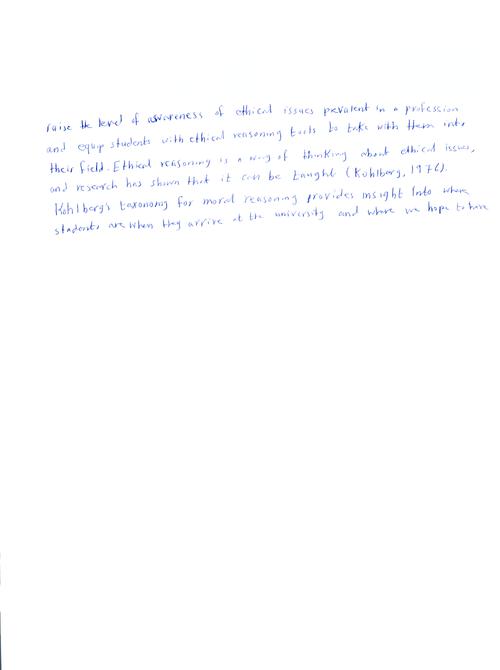 raise the level of awareness of ethical issues prevalent in a profession
and equip students with ethical reasoning tools to take with them into
their field. Ethical reasoning is a way of thinking about ethical issues,
and research has shown that it can be taught (Kohlberg, 1976).
Kohlberg's taxonomy for moral reasoning provides insight Into where
students are when they arrive at the university and where we hope to have